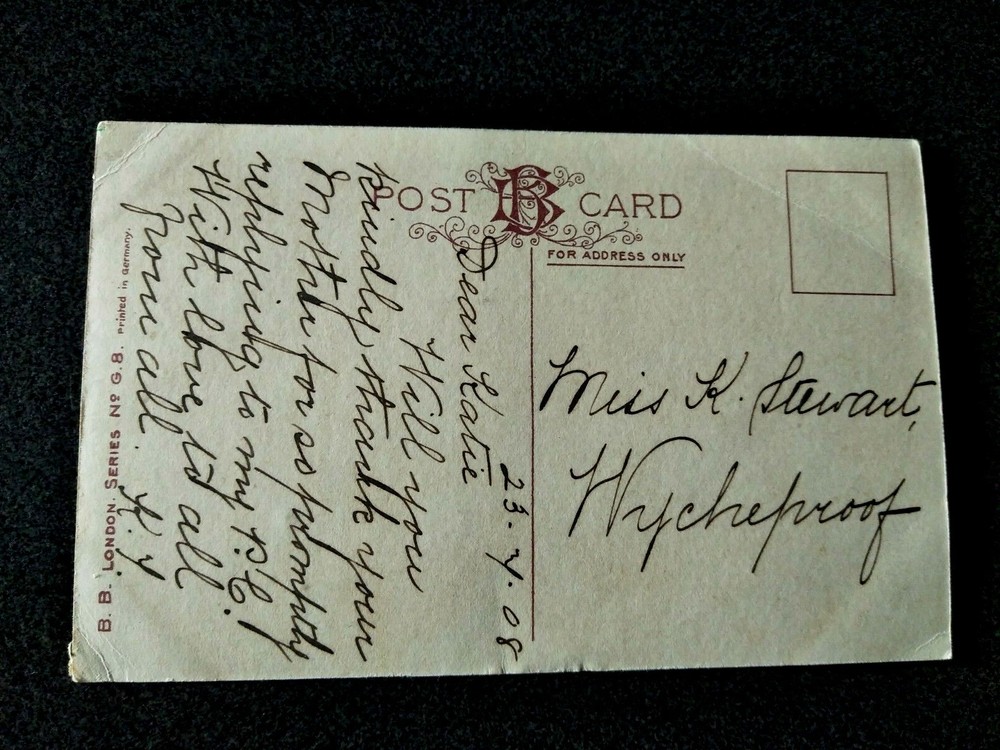 POST CARD
FOR ADDRESS ONLY
23.7.08
Dear Katie
Will you
kindly thank your
Mother for so promptly
replying to my P.C.!
With love to all
from all.
Miss K. Stewart,
Wycheproof
B. B. LONDON. SERIES No G.8. Printed in Germany.